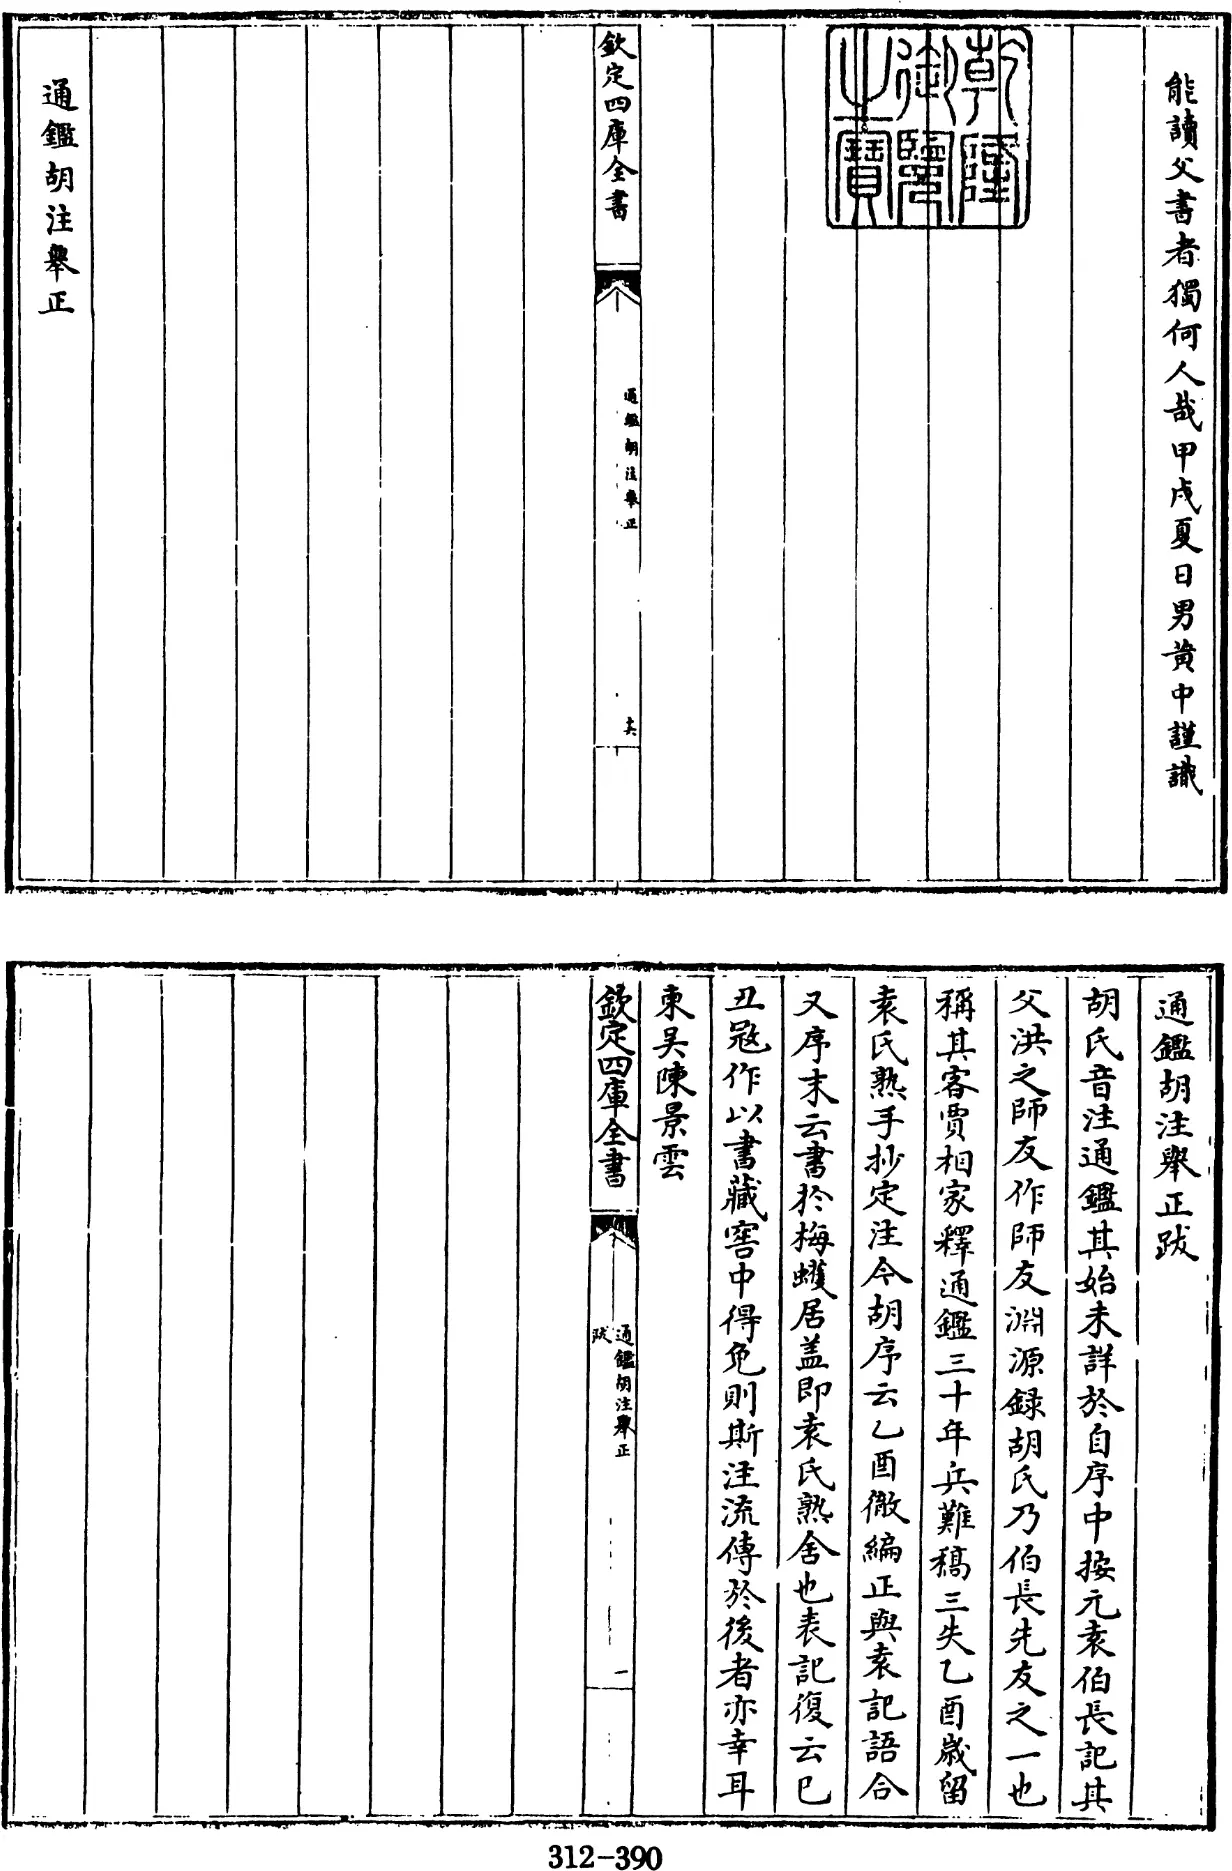 能讀父書者獨何人哉甲戌夏日男黄中謹識
乾隆
御覽
之寶
欽定四庫全書
通鑑胡注舉正
十六
通鑑胡注舉正
通鑑胡注舉正跋
胡氏音注通鑑其始末詳於自序中按元袁伯長記其
父洪之師友作師友淵源録胡氏乃伯長先友之一也
稱其客賈相家釋通鑑三十年兵難稿三失乙酉歲留
袁氏熟手抄定注今胡序云乙酉徹編正與袁記語合
又序末云書於梅蠖居盖即袁氏熟舍也表記復云已
丑冦作以書藏窖中得免則斯注流傳於後者亦幸耳
東吴陳景雲
欽定四庫全書
通鑑胡注舉正
跋
一
312-390